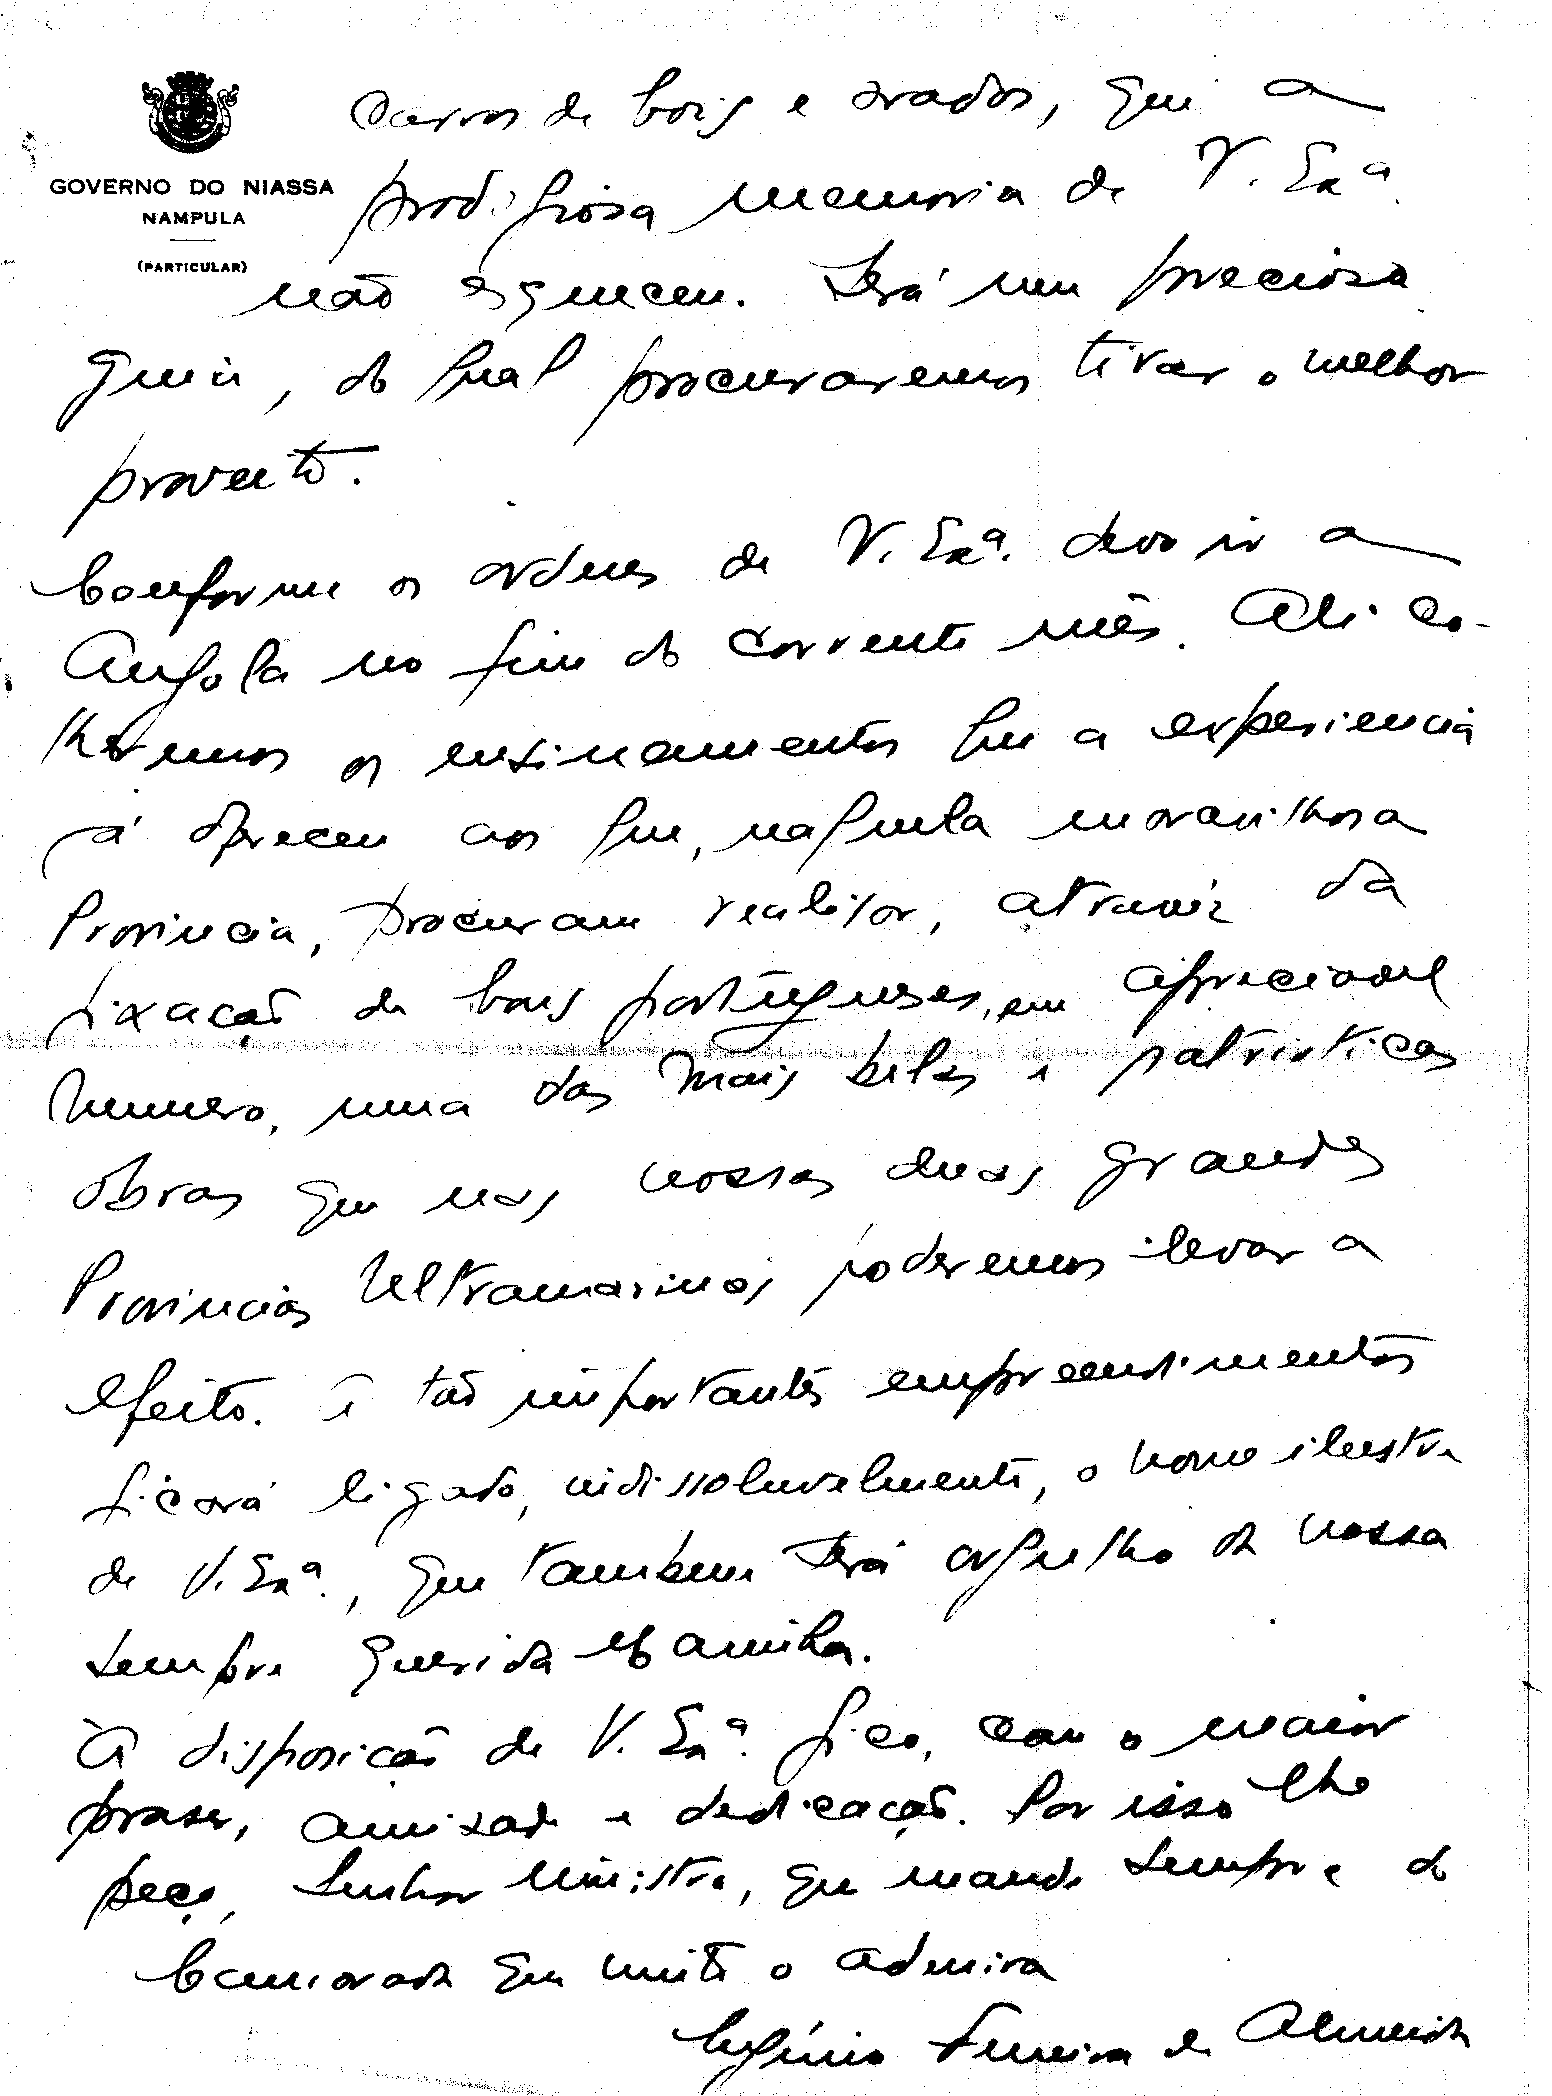 GOVERNO DO NIASSA
NAMPULA
(PARTICULAR)
carros de bois e arados, que a
prodigiosa memoria de V. Exª.
não esqueceu. Será um precioso
guia, do qual procuraremos tirar o melhor
proveito.
Conforme as ordens de V. Exª. devo ir a
Angola no fim do corrente mês. Ali co-
lheremos os ensinamentos que a experiencia
já ofereceu aos que, naquela maravilhosa
Provincia, procuram realisar, através da
fixação de bons portugueses, em apreciavel
numero, uma das mais belas e patrioticas
obras que nas nossas duas grandes
Provincias Ultramarinas poderemos levar a
efeito. A tão importantes empreendimentos
ficará ligado, indissoluvelmente, o nome ilustre
de V. Exª., que tambem será orgulho da nossa
sempre querida
À disposição de V. Exª. fico, com o maior
praser, amisade e dedicação. Por isso lhe
peço, Senhor Ministro, que mande sempre o
Camarada que muito o admira
Eugénio Ferreira de Almeida